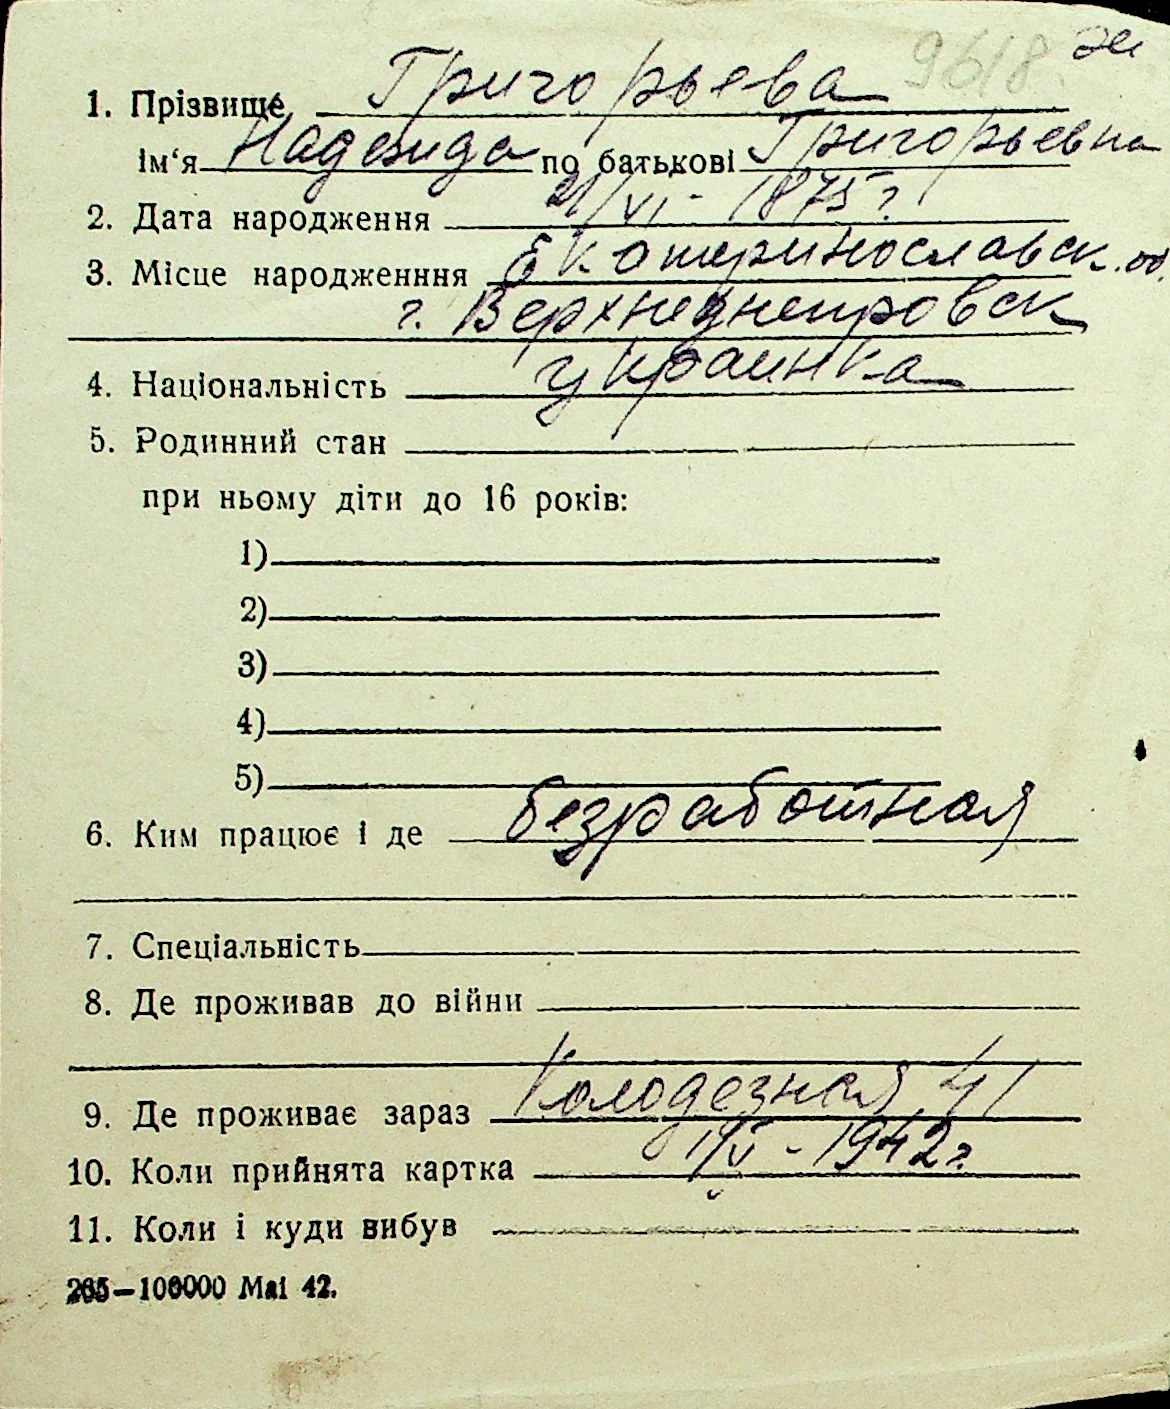 9618. ж
1. Прізвище Григорьева
Ім‘я Надежда по батькові Григорьевна
2. Дата народження 21/VI - 1875 г.
3. Місце народженння Екатеринославск. об.
г. Верхнеднепровск
4. Національність украинка
5. Родинний стан
при ньому діти до 16 років:
1)
2)
3)
4)
5)
6. Ким працює і де безработная
7. Спеціальність
8. Де проживав до війни
9. Де проживає зараз Колодезная 41
10. Коли прийнята картка 1/V - 1942 г.
11. Коли і куди вибув
265—100000 Mai 42.